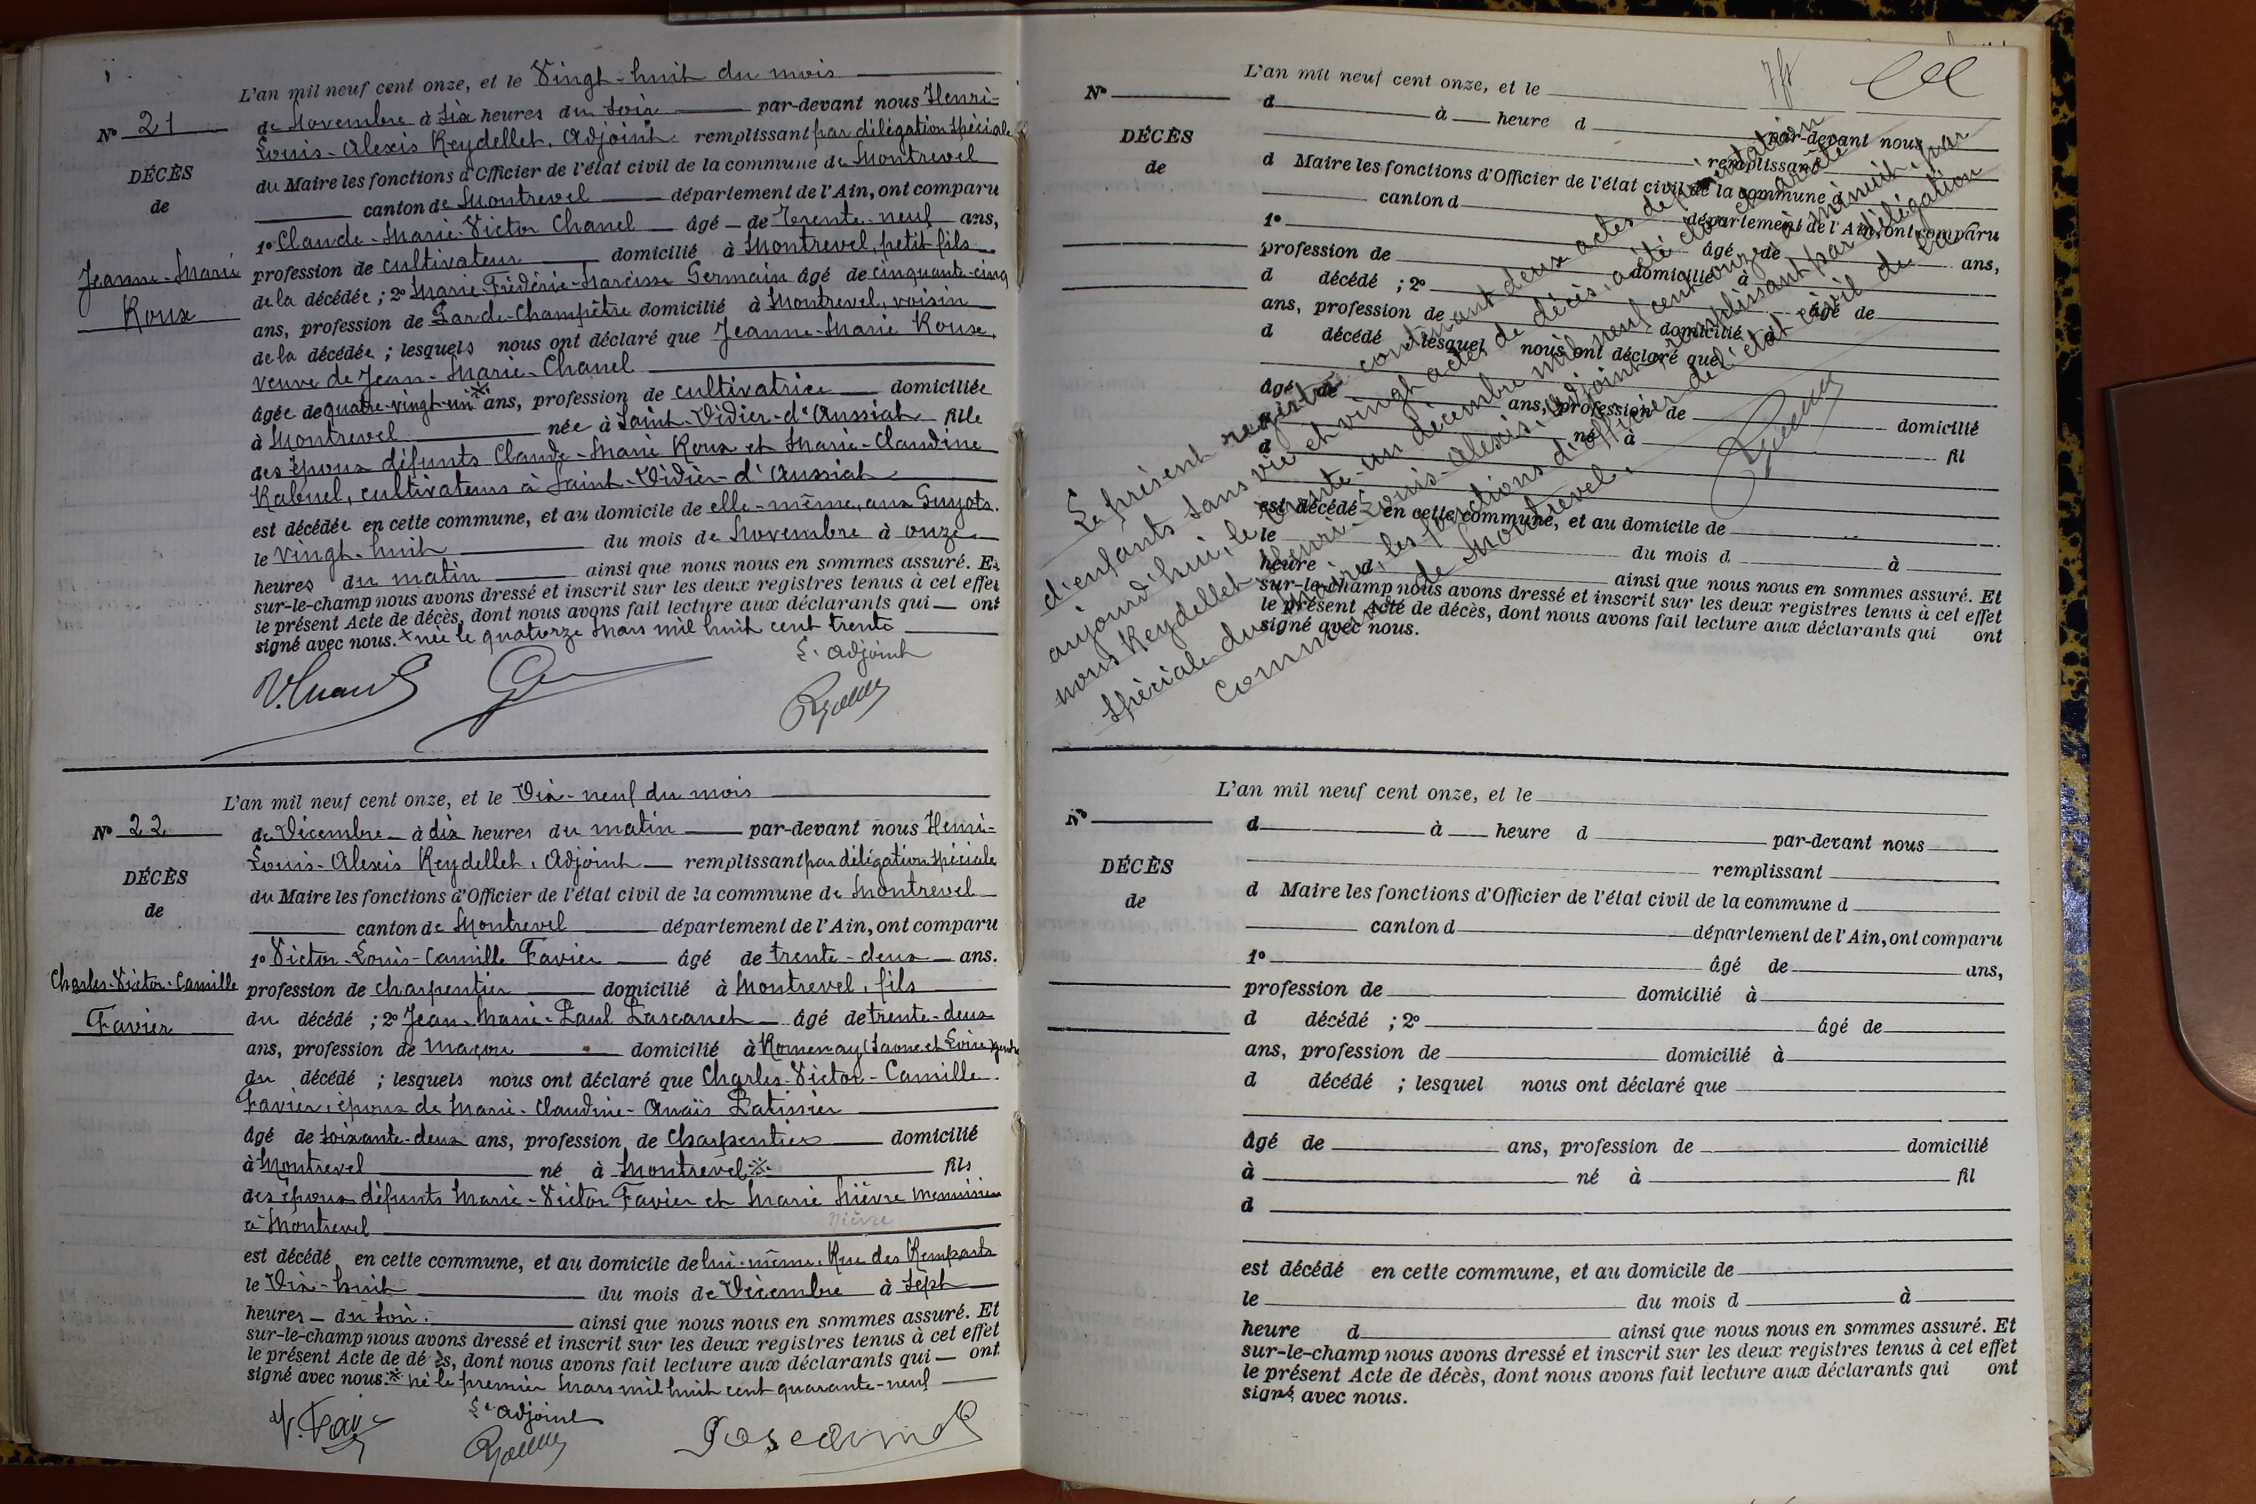 L'an mil neuf cent onze, et le Vingt-huit du mois
N° 21
de Novembre à six heures du soir par-devant nous Henri-
Louis-Alexis Reydellet, Adjoint remplissant par délégation spéciale
DÉCÈS
de
du Maire les fonctions d'Officier de l'état civil de la commune de Montrevel
canton de Montrevel département de l'Ain, ont comparu
1° Claude-Marie-Victor Chanel âgé de Trente-neuf ans,
Jeanne-Marie
Roux
profession de cultivateur domicilié à Montrevel, petit-fils
de la décédée ; 2° Marie-Frédéric-Narcisse Germain âgé de cinquante-cinq
ans, profession de Garde-Champêtre domicilié à Montrevel, voisin
de la décédée ; lesquels nous ont déclaré que Jeanne-Marie Roux,
veuve de Jean-Marie-Chanel
âgée de quatre-vingt-un ※ ans, profession de cultivatrice domiciliée
à Montrevel née à Saint-Didier-d'Aussiat fille
des époux défunts Claude-Marie Roux et Marie-Claudine
Rabuel, cultivateurs à Saint-Didier-d'Aussiat
est décédée en cette commune, et au domicile de elle-même, aux Guyots.
le vingt-huit du mois de Novembre à onze
heures du matin ainsi que nous nous en sommes assuré. Et
sur-le-champ nous avons dressé et inscrit sur les deux registres tenus à cet effet
le présent Acte de décès, dont nous avons fait lecture aux déclarants qui ont
signé avec nous. × née le quatorze Mars mil huit cent trente
L'adjoint
L'an mil neuf cent onze, et le Dix-neuf du mois
N° 22
de Décembre à dix heures du matin par-devant nous Henri-
Louis-Alexis Reydellet, Adjoint remplissant par délégation spéciale
DÉCÈS
de
du Maire les fonctions d'Officier de l'état civil de la commune de Montrevel
canton de Montrevel département de l'Ain, ont comparu
1° Victor-Louis-Camille Favier âgé de trente-deux ans.
Charles-Victor-Camille
Favier
profession de charpentier domicilié à Montrevel, fils
du décédé ; 2° Jean-Marie-Paul Pascanet âgé de trente-deux
ans, profession de maçon domicilié à Romenay (Saône et Loire) gendre
du décédé ; lesquels nous ont déclaré que Charles-Victor-Camille
Favier, époux de Marie-Claudine-Anaïs Patissier
âgé de soixante-deux ans, profession de Charpentier domicilié
à Montrevel né à Montrevel ※ fils
des époux défunts Marie-Victor Favier et Marie Nièvre menuisier
à Montrevel
Nièvre
est décédé en cette commune, et au domicile de lui-même, Rue des Remparts
le Dix-huit du mois de Décembre à sept
heures du soir. ainsi que nous nous en sommes assuré. Et
sur-le-champ nous avons dressé et inscrit sur les deux registres tenus à cet effet
le présent Acte de dé ès, dont nous avons fait lecture aux déclarants qui ont
signé avec nous. ※ né le premier Mars mil huit cent quarante-neuf
V. Favier
L'adjoint
Pascanet
L'an mil neuf cent onze, et le
N°
d à heure d par-devant nous
DÉCÈS
de
remplissant
d Maire les fonctions d'Officier de l'état civil de la commune d
canton d département de l'Ain, ont comparu
1° âgé de ans,
profession de domicilié à
d décédé ; 2° âgé de
ans, profession de domicilié à
d décédé ; lesquel nous ont déclaré que
âgé de ans, profession de domicilié
à né à fil
d
est décédé en cette commune, et au domicile de
le du mois d à
heure d ainsi que nous nous en sommes assuré. Et
sur-le-champ nous avons dressé et inscrit sur les deux registres tenus à cet effet
le présent Acte de décès, dont nous avons fait lecture aux déclarants qui ont
signé avec nous.
Le présent registre contenant deux actes de présentation
d'enfants sans vie et vingt actes de décès, a été clos et arrêté
aujourd'hui, le trente-un décembre mil neuf cent onze, à minuit, par
nous Reydellet, Henri-Louis-Alexis, Adjoint, remplissant par délégation
spéciale du Maire, les fonctions d'officier de l'état civil de la
commune de Montrevel.
L'an mil neuf cent onze, et le
N°
d à heure d par-devant nous
DÉCÈS
de
remplissant
d Maire les fonctions d'Officier de l'état civil de la commune d
canton d département de l'Ain, ont comparu
1° âgé de ans,
profession de domicilié à
d décédé ; 2° âgé de
ans, profession de domicilié à
d décédé ; lesquel nous ont déclaré que
âgé de ans, profession de domicilié
à né à fil
d
est décédé en cette commune, et au domicile de
le du mois d à
heure d ainsi que nous nous en sommes assuré. Et
sur-le-champ nous avons dressé et inscrit sur les deux registres tenus à cet effet
le présent Acte de décès, dont nous avons fait lecture aux déclarants qui ont
signé avec nous.